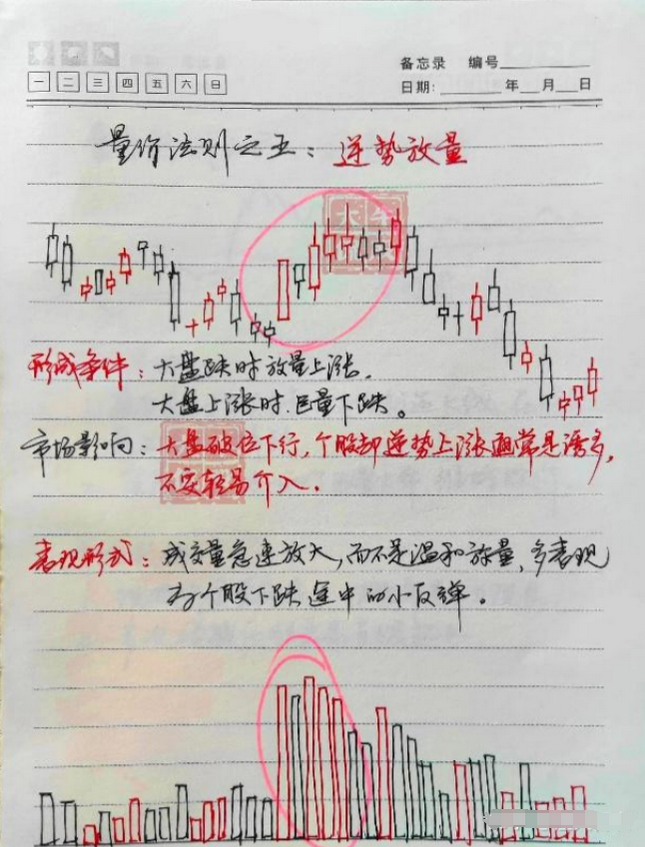 备忘录 编号
一 二 三 四 五 六 日
日期: 年 月 日
量价法则之五：逆势放量
形成条件：大盘跌时放量上涨，
大盘上涨时，巨量下跌。
市场影响：大盘破位下行，个股却逆势上涨通常是诱多，
不要轻易介入．
表现形式：成交量急速放大，而不是温和放量，多表现
为个股下跌途中的小反弹。